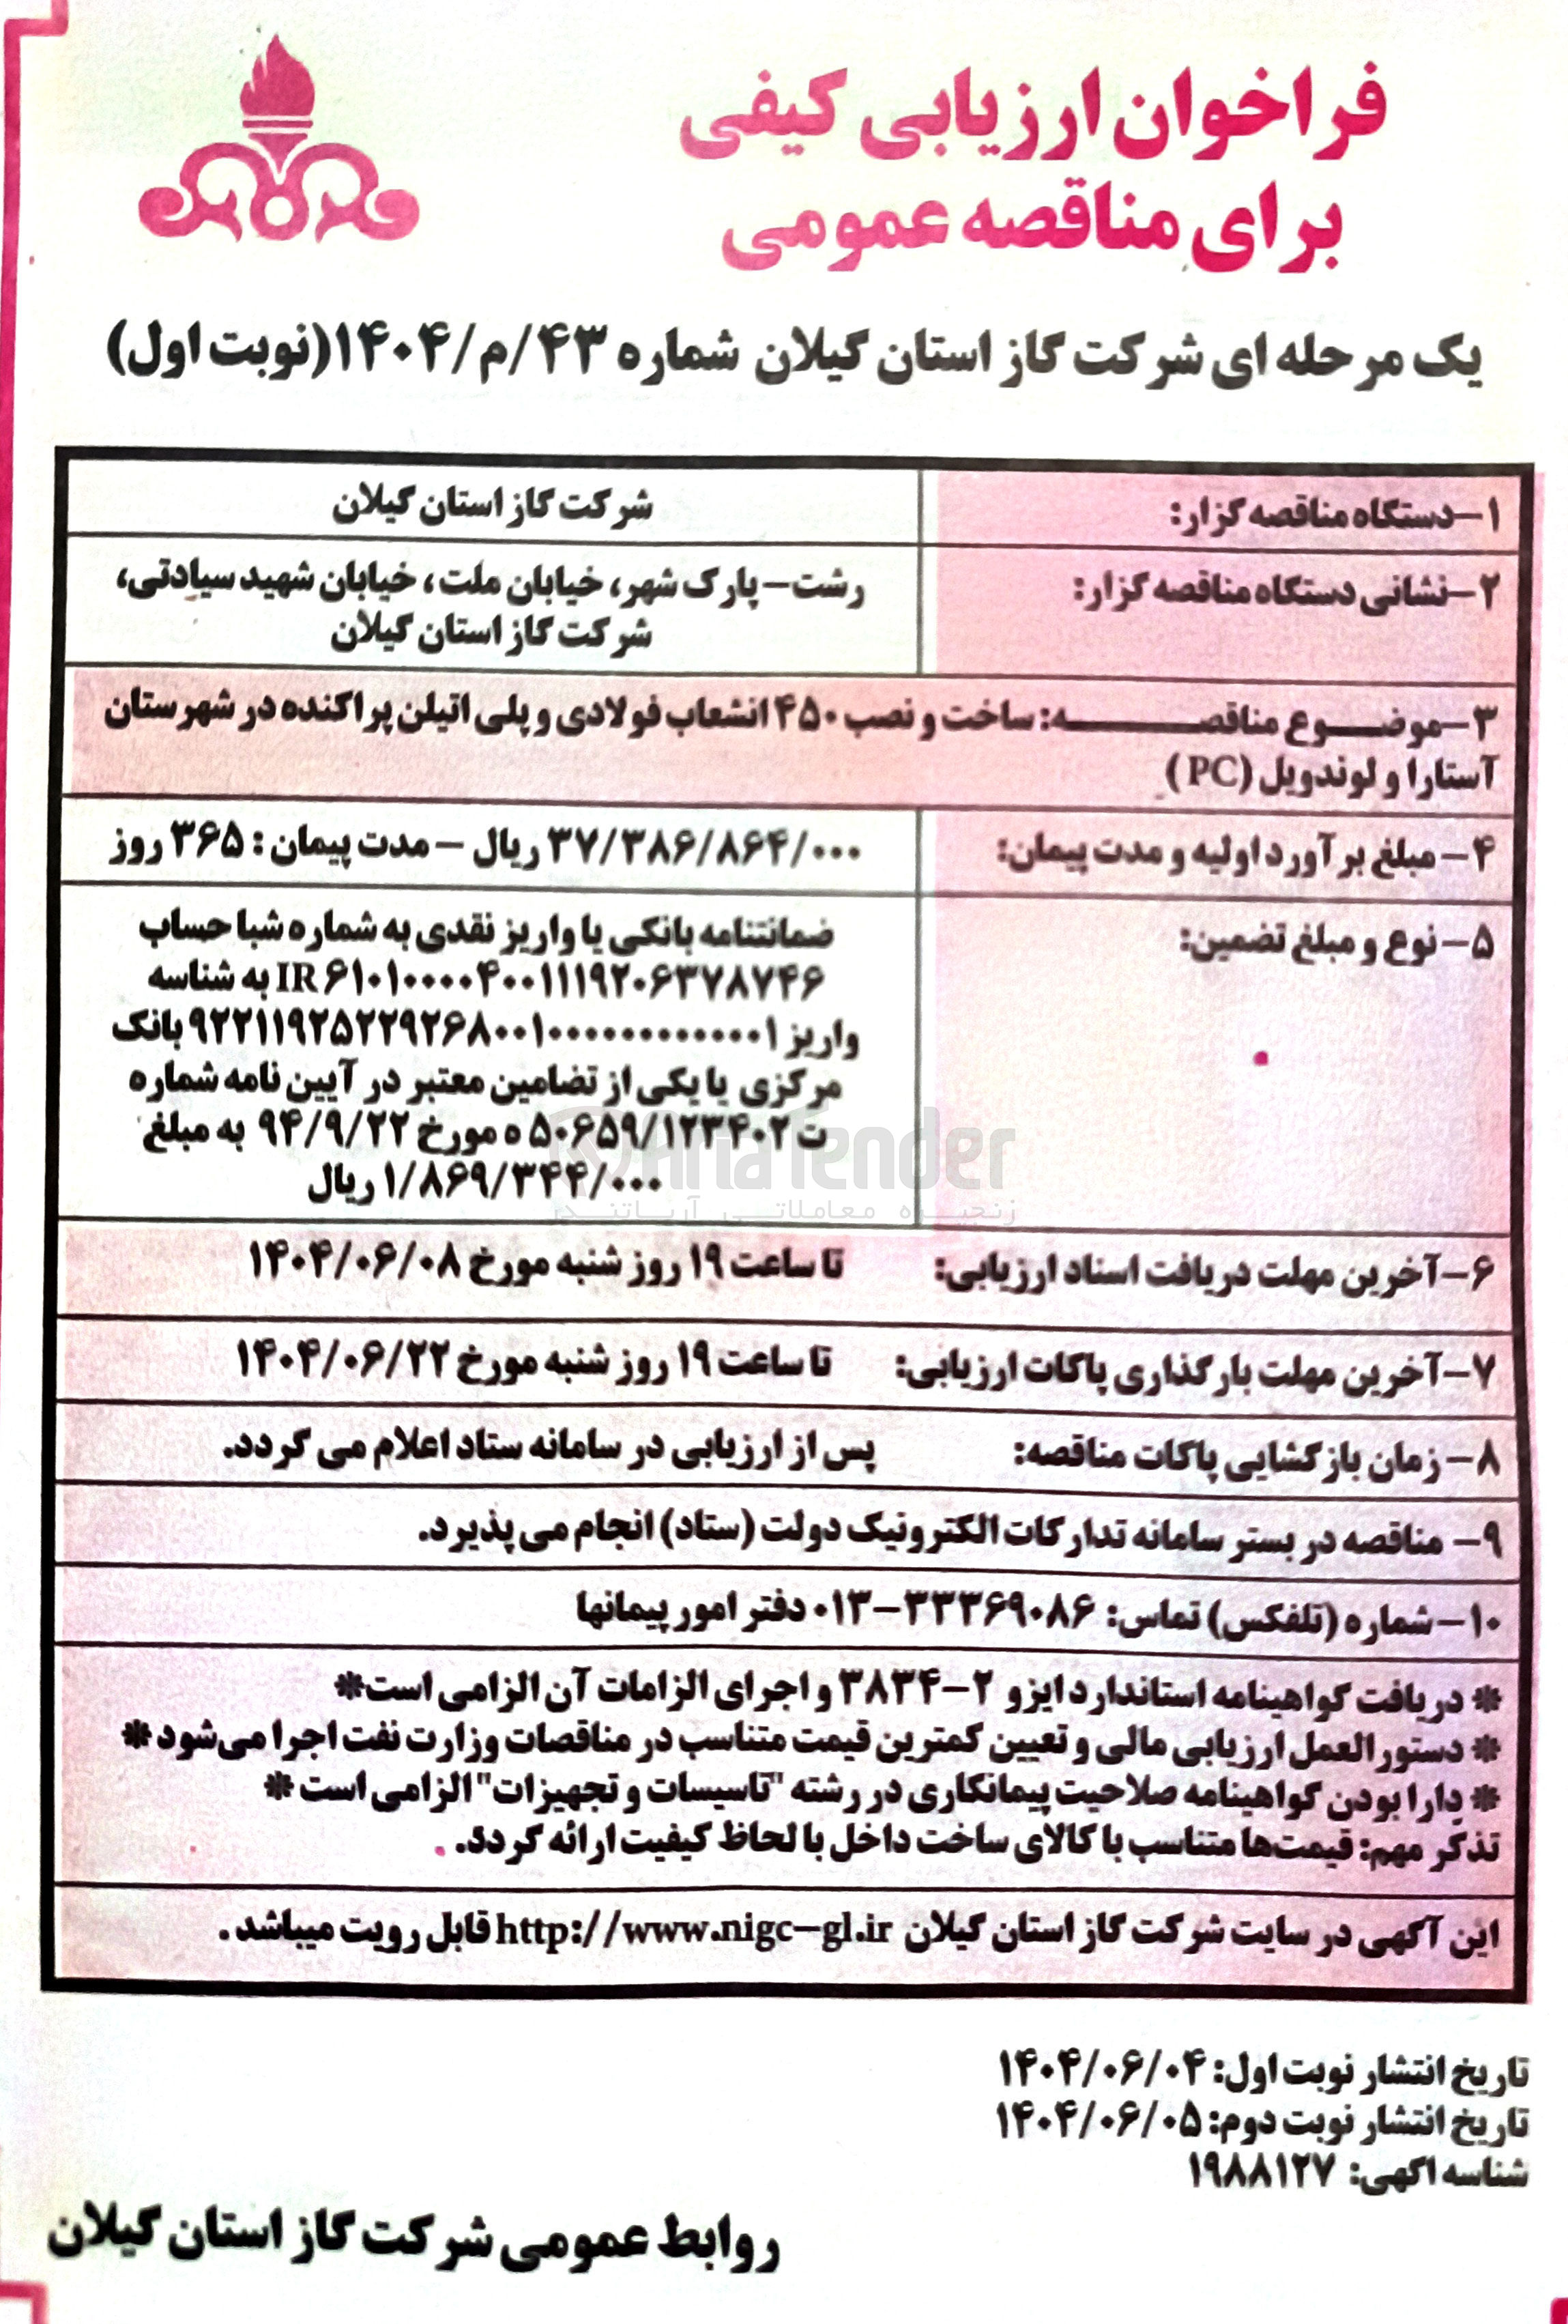 فراخوان ارزیابی کیفی
برای مناقصه عمومی
یک مرحله ای شرکت گاز استان گیلان شماره ۴۳/م/۱۴۰۴(نوبت اول)
۱-دستگاه مناقصه گزار: شرکت گاز استان گیلان
۲-نشانی دستگاه مناقصه گزار: رشت-پارک شهر، خیابان ملت، خیابان شهید سیادتی،
شرکت گاز استان گیلان
۳-موضوع مناقصه: ساخت و نصب ۴۵۰ انشعاب فولادی و پلی اتیلن پراکنده در شهرستان
آستارا و لوندویل (PC)
۴- مبلغ برآورد اولیه و مدت پیمان: ۳۷/۳۸۶/۸۶۴/۰۰۰ ریال - مدت پیمان : ۳۶۵ روز
۵- نوع و مبلغ تضمین: ضمانتنامه بانکی یا واریز نقدی به شماره شبا حساب
IR ۶۱۰۱۰۰۰۰۴۰۰۱۱۱۹۲۰۶۳۷۸۷۴۶ به شناسه
واریز ۹۲۲۱۱۹۲۵۲۲۹۲۶۸۰۰۱۰۰۰۰۰۰۰۰۰۰۰۰۱ بانک
مرکزی یا یکی از تضامین معتبر در آیین نامه شماره
۱۲۳۴۰۲/ت۵۰۶۵۹ ه مورخ ۹۴/۹/۲۲ به مبلغ
۱/۸۶۹/۳۴۴/۰۰۰ ریال
AriaTender
زنجیره معاملاتی آریاتندر
۶-آخرین مهلت دریافت اسناد ارزیابی: تا ساعت ۱۹ روز شنبه مورخ ۱۴۰۴/۰۶/۰۸
۷-آخرین مهلت بارگذاری پاکات ارزیابی: تا ساعت ۱۹ روز شنبه مورخ ۱۴۰۴/۰۶/۲۲
۸- زمان بازگشایی پاکات مناقصه: پس از ارزیابی در سامانه ستاد اعلام می گردد.
۹- مناقصه در بستر سامانه تدارکات الکترونیک دولت (ستاد) انجام می پذیرد.
۱۰- شماره (تلفکس) تماس: ۳۳۳۶۹۰۸۶-۰۱۳ دفتر امور پیمانها
* دریافت گواهینامه استاندارد ایزو ۲-۳۸۳۴ و اجرای الزامات آن الزامی است*
* دستورالعمل ارزیابی مالی و تعیین کمترین قیمت متناسب در مناقصات وزارت نفت اجرا می‌شود *
* دارا بودن گواهینامه صلاحیت پیمانکاری در رشته "تاسیسات و تجهیزات" الزامی است *
تذکر مهم: قیمت‌ها متناسب با کالای ساخت داخل با لحاظ کیفیت ارائه گردد.
این آگهی در سایت شرکت گاز استان گیلان http://www.nigc-gl.ir قابل رویت میباشد .
تاریخ انتشار نوبت اول: ۱۴۰۴/۰۶/۰۴
تاریخ انتشار نوبت دوم: ۱۴۰۴/۰۶/۰۵
شناسه اگهی: ۱۹۸۸۱۲۷
روابط عمومی شرکت گاز استان گیلان